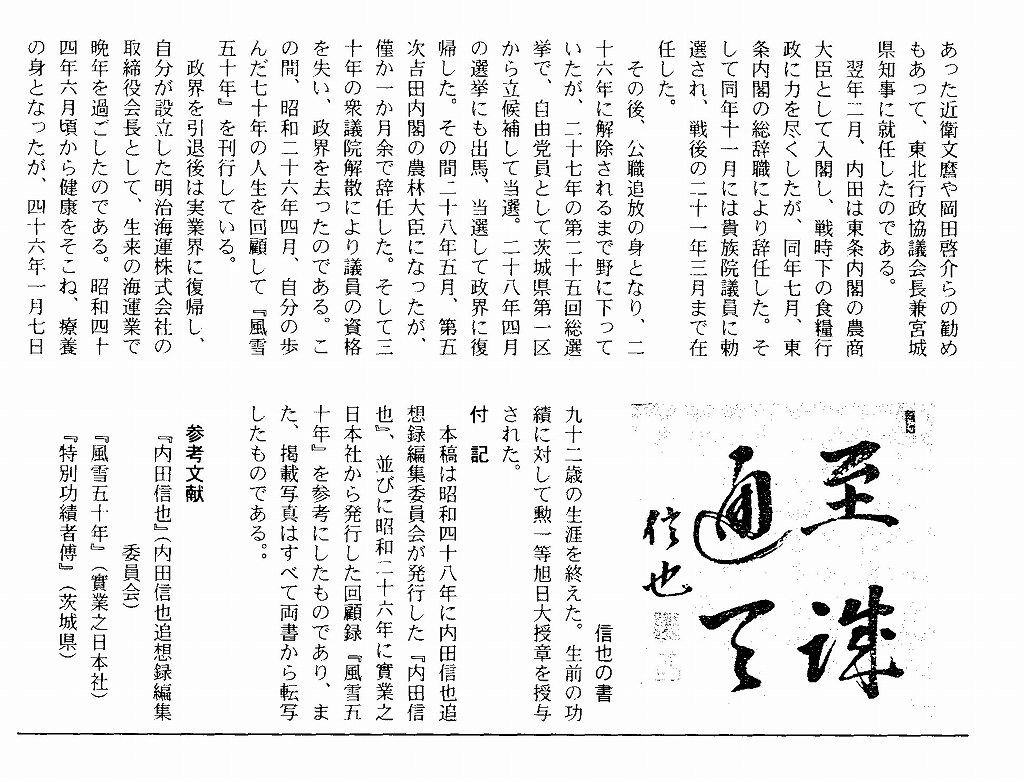 あった近衛文麿や岡田啓介らの勧め
もあって、東北行政協議会長兼宮城
県知事に就任したのである。
翌年二月、内田は東条内閣の農商
大臣として入閣し、戦時下の食糧行
政に力を尽くしたが、同年七月、東
条内閣の総辞職により辞任した。そ
して同年十一月には貴族院議員に勅
選され、戦後の二十一年三月まで在
任した。
その後、公職追放の身となり、二
十六年に解除されるまで野に下って
いたが、二十七年の第二十五回総選
挙で、自由党員として茨城県第一区
から立候補して当選。二十八年四月
の選挙にも出馬、当選して政界に復
帰した。その間二十八年五月、第五
次吉田内閣の農林大臣になったが、
僅か一か月余で辞任した。そして三
十年の衆議院解散により議員の資格
を失い、政界を去ったのである。こ
の間、昭和二十六年四月、自分の歩
んだ七十年の人生を回顧して『風雪
五十年』を刊行している。
政界を引退後は実業界に復帰し、
自分が設立した明治海運株式会社の
取締役会長として、生来の海運業で
晩年を過ごしたのである。昭和四十
四年六月頃から健康をそこね、療養
の身となったが、四十六年一月七日
至誠
通天
信也
信也の書
九十二歳の生涯を終えた。生前の功
績に対して勲一等旭日大授章を授与
された。
付　記
本稿は昭和四十八年に内田信也追
想録編集委員会が発行した『内田信
也』、並びに昭和二十六年に實業之
日本社から発行した回顧録『風雪五
十年』を参考にしたものであり、ま
た、掲載写真はすべて両書から転写
したものである。。
参考文献
『内田信也』（内田信也追想録編集
委員会）
『風雪五十年』（實業之日本社）
『特別功績者傳』（茨城県）